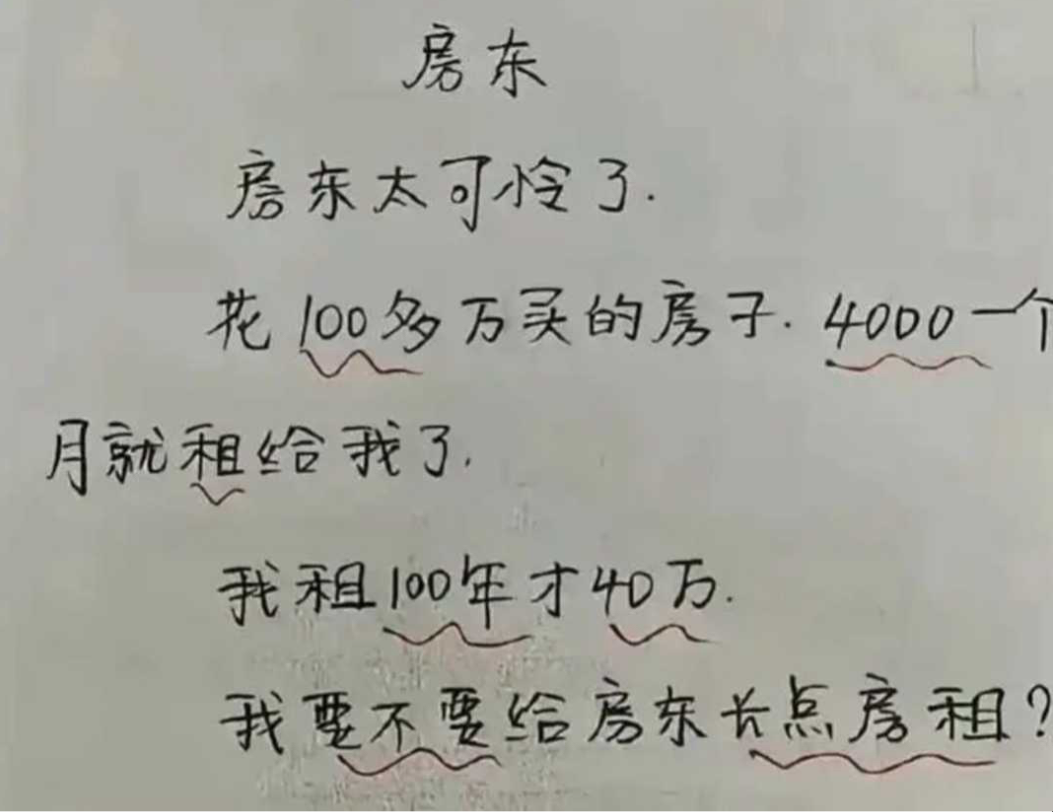 房东
房东太可怜了.
花100多万买的房子.4000一个
月就租给我了.
我租100年才40万.
我要不要给房东长点房租?